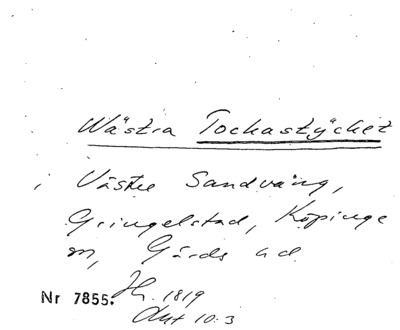 Wästra Tockastycket
Västra Sandvång,
Gringelstad, Köpinge
sn, Gärds hd.
Nr 7855. Jh. 1819
Akt 10:3